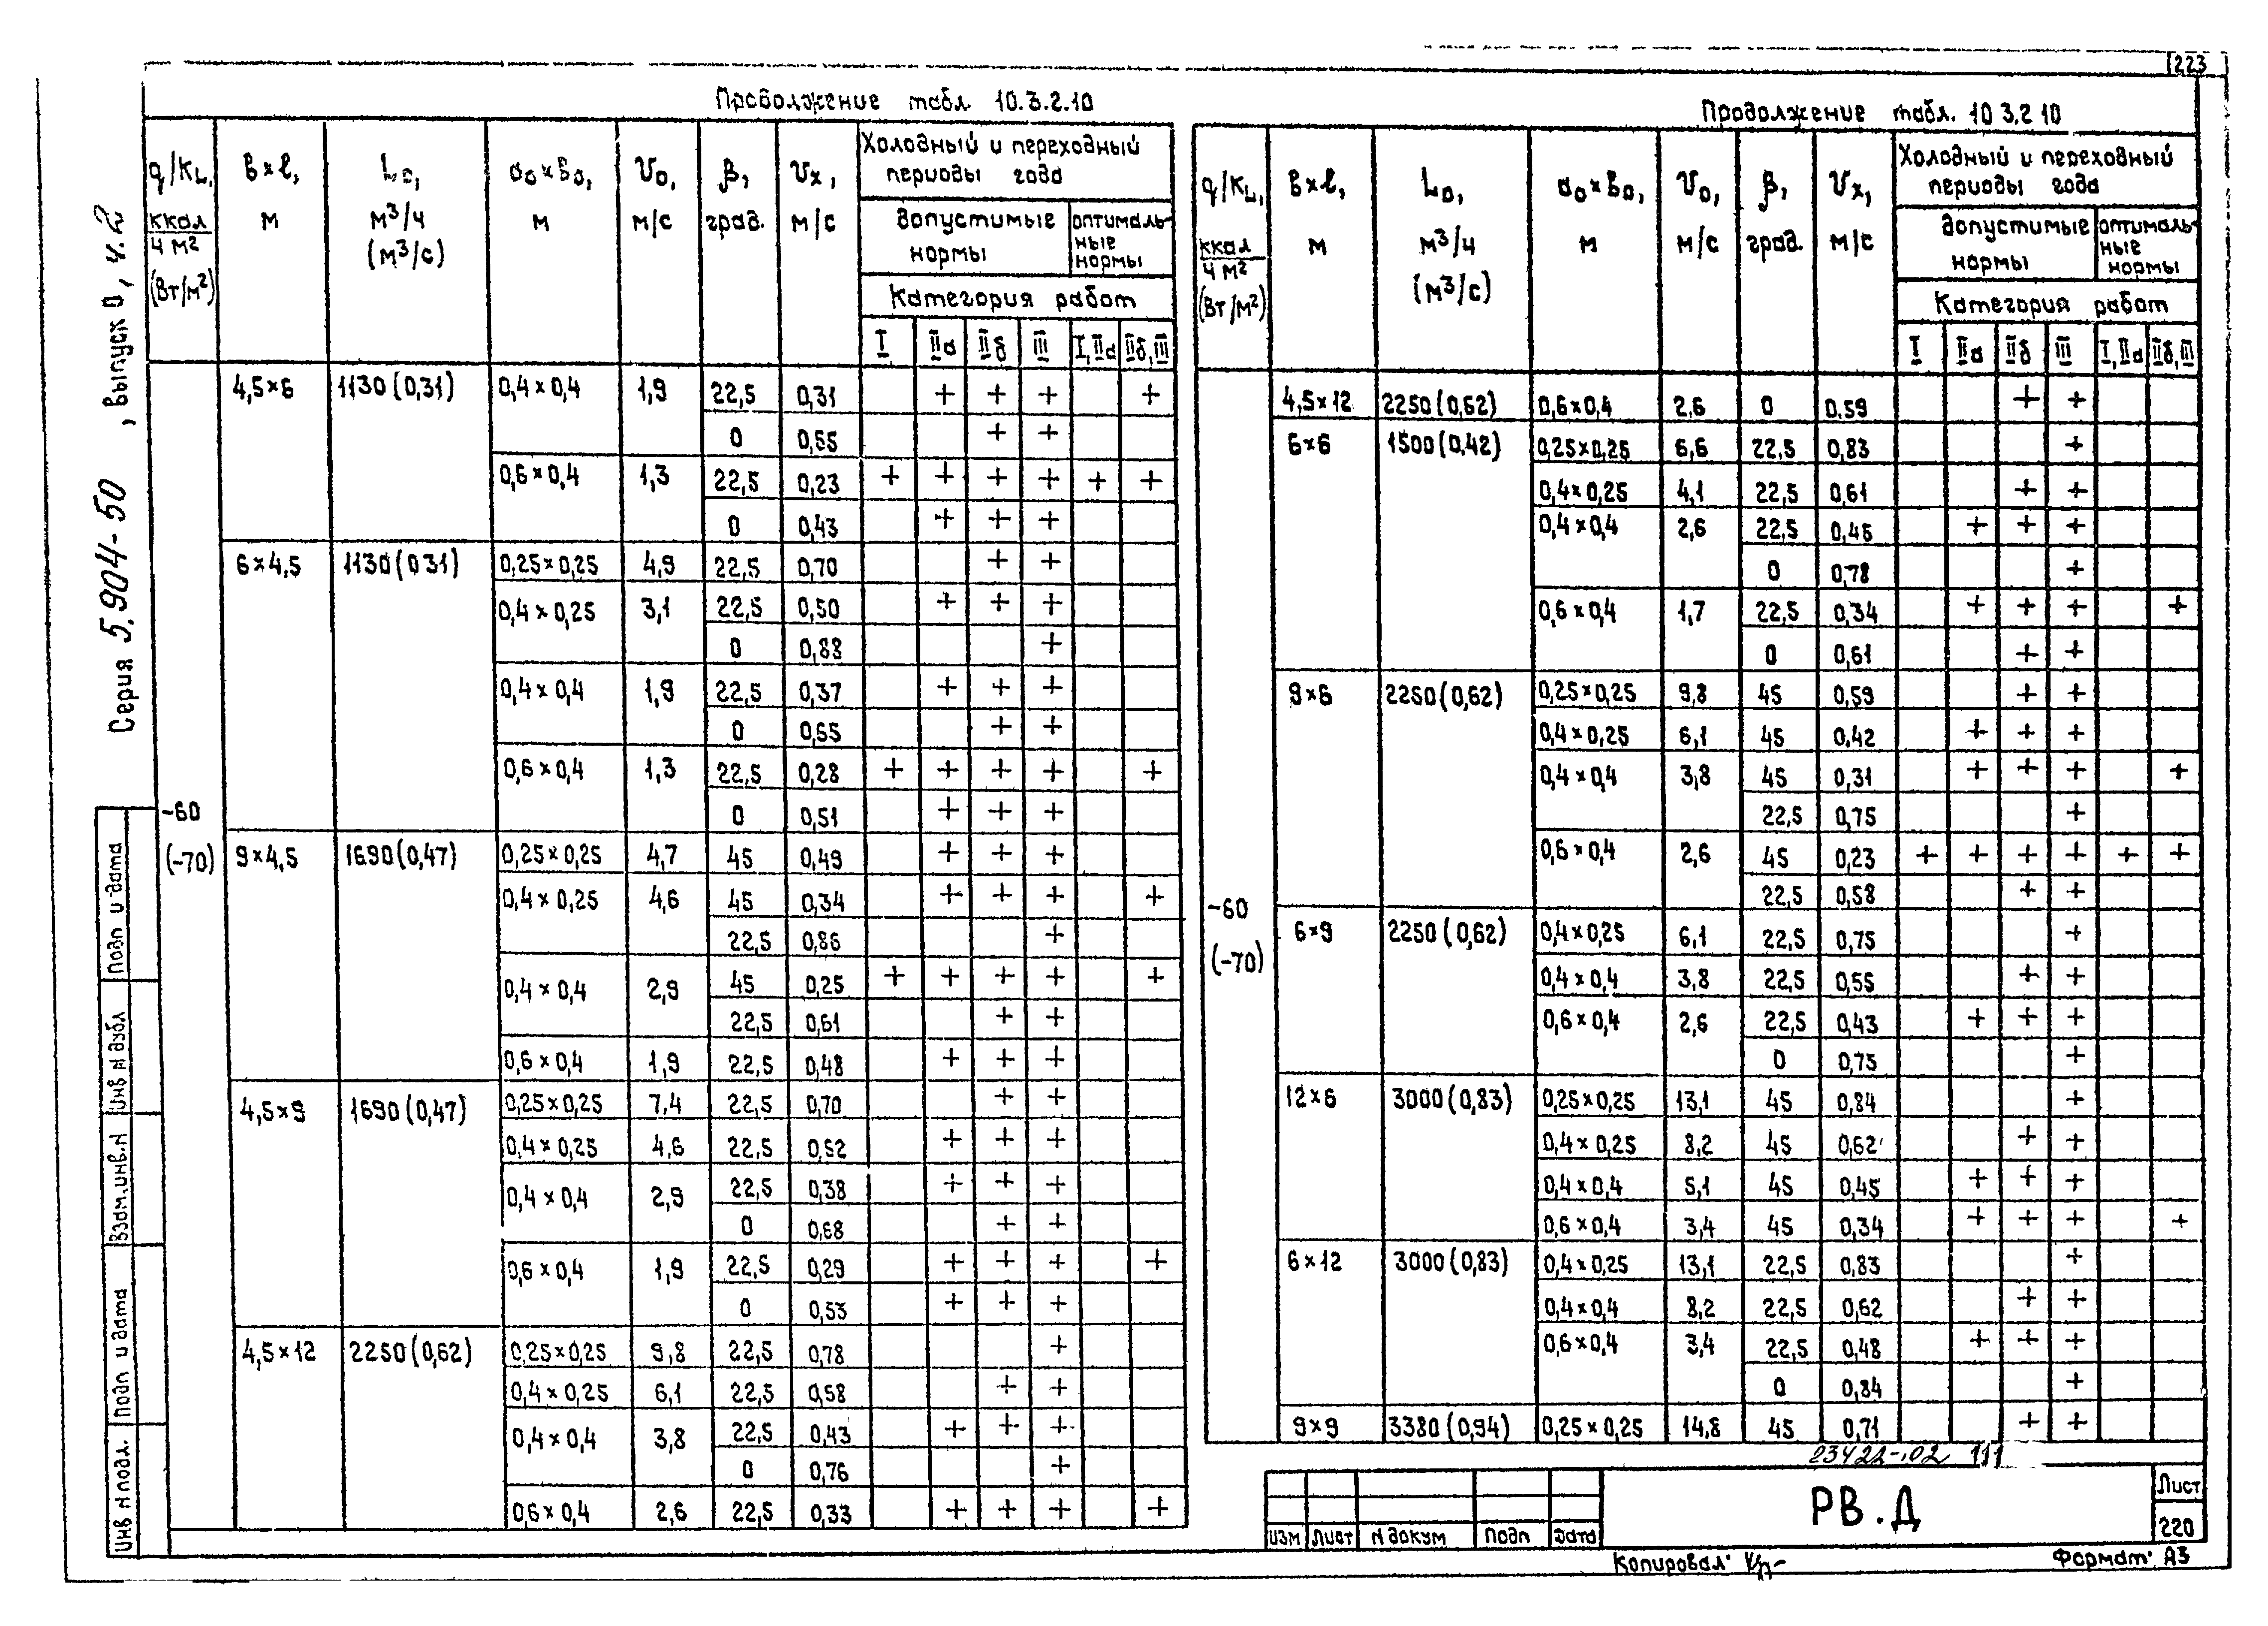 223
Серия 5.904-50 , выпуск 0, ч.2
Продолжение табл. 10.3.2.10
q/KL, ккал/ч м² (Вт/м²) | в×ℓ, м | L₀, м³/ч (м³/с) | a₀×в₀, м | V₀, м/с | β, град. | Vx, м/с | Холодный и переходный периоды года
допустимые нормы | оптимальные нормы
Категория работ
I | IIа | IIб | III | I,IIа | IIб,III
-60 (-70)
4,5×6 | 1130(0,31) | 0,4×0,4 | 1,9 | 22,5 | 0,31 | | + | + | + | | +
0 | 0,55 | | | + | + | |
0,6×0,4 | 1,3 | 22,5 | 0,23 | + | + | + | + | + | +
0 | 0,43 | | + | + | + | |
6×4,5 | 1130(0 31) | 0,25×0,25 | 4,9 | 22,5 | 0,70 | | | + | + | |
0,4×0,25 | 3,1 | 22,5 | 0,50 | | + | + | + | |
0 | 0,88 | | | | + | |
0,4×0,4 | 1,9 | 22,5 | 0,37 | | + | + | + | |
0 | 0,65 | | | + | + | |
0,6×0,4 | 1,3 | 22,5 | 0,28 | + | + | + | + | | +
0 | 0,51 | | + | + | + | |
9×4,5 | 1690(0,47) | 0,25×0,25 | 4,7 | 45 | 0,49 | | + | + | + | |
0,4×0,25 | 4,6 | 45 | 0,34 | | + | + | + | | +
22,5 | 0,86 | | | | + | |
0,4×0,4 | 2,9 | 45 | 0,25 | + | + | + | + | | +
22,5 | 0,61 | | | + | + | |
0,6×0,4 | 1,9 | 22,5 | 0,48 | | + | + | + | |
4,5×9 | 1690(0,47) | 0,25×0,25 | 7,4 | 22,5 | 0,70 | | | + | + | |
0,4×0,25 | 4,6 | 22,5 | 0,52 | | + | + | + | |
0,4×0,4 | 2,9 | 22,5 | 0,38 | | + | + | + | |
0 | 0,68 | | | + | + | |
0,6×0,4 | 1,9 | 22,5 | 0,29 | | + | + | + | | +
0 | 0,53 | | + | + | + | |
4,5×12 | 2250(0,62) | 0,25×0,25 | 9,8 | 22,5 | 0,78 | | | | + | |
0,4×0,25 | 6,1 | 22,5 | 0,58 | | | + | + | |
0,4×0,4 | 3,8 | 22,5 | 0,43 | | + | + | + | |
0 | 0,76 | | | | + | |
0,6×0,4 | 2,6 | 22,5 | 0,33 | | + | + | + | | +
Продолжение табл. 10 3.2 10
q/KL, ккал/ч м² (Вт/м²) | в×ℓ, м | L₀, м³/ч (м³/с) | a₀×в₀, м | V₀, м/с | β, град. | Vx, м/с | Холодный и переходный периоды года
допустимые нормы | оптимальные нормы
Категория работ
I | IIа | IIб | III | I,IIа | IIб,III
-60 (-70)
4,5×12 | 2250(0,62) | 0,6×0,4 | 2,6 | 0 | 0,59 | | | + | + | |
6×6 | 1500(0,42) | 0,25×0,25 | 6,6 | 22,5 | 0,83 | | | | + | |
0,4×0,25 | 4,1 | 22,5 | 0,61 | | | + | + | |
0,4×0,4 | 2,6 | 22,5 | 0,46 | | + | + | + | |
0 | 0,78 | | | | + | |
0,6×0,4 | 1,7 | 22,5 | 0,34 | | + | + | + | | +
0 | 0,61 | | | + | + | |
9×6 | 2250(0,62) | 0,25×0,25 | 9,8 | 45 | 0,59 | | | + | + | |
0,4×0,25 | 6,1 | 45 | 0,42 | | + | + | + | |
0,4×0,4 | 3,8 | 45 | 0,31 | | + | + | + | | +
22,5 | 0,75 | | | | + | |
0,6×0,4 | 2,6 | 45 | 0,23 | + | + | + | + | + | +
22,5 | 0,58 | | | + | + | |
6×9 | 2250(0,62) | 0,4×0,25 | 6,1 | 22,5 | 0,75 | | | | + | |
0,4×0,4 | 3,8 | 22,5 | 0,55 | | | + | + | |
0,6×0,4 | 2,6 | 22,5 | 0,43 | | + | + | + | |
0 | 0,75 | | | | + | |
12×6 | 3000(0,83) | 0,25×0,25 | 13,1 | 45 | 0,84 | | | | + | |
0,4×0,25 | 8,2 | 45 | 0,62 | | | + | + | |
0,4×0,4 | 5,1 | 45 | 0,45 | | + | + | + | |
0,6×0,4 | 3,4 | 45 | 0,34 | | + | + | + | | +
6×12 | 3000(0,83) | 0,4×0,25 | 13,1 | 22,5 | 0,83 | | | | + | |
0,4×0,4 | 8,2 | 22,5 | 0,62 | | | + | + | |
0,6×0,4 | 3,4 | 22,5 | 0,48 | | + | + | + | |
0 | 0,84 | | | | + | |
9×9 | 3380(0,94) | 0,25×0,25 | 14,8 | 45 | 0,71 | | | + | + | |
23422-02 111
Изм | Лист | N докум | Подп | Дата
РВ.Д
Лист
220
Копировал:
Формат: А3
Инв N подл. | Подп и дата | Взам.инв.N | Инв N дубл | Подп и дата